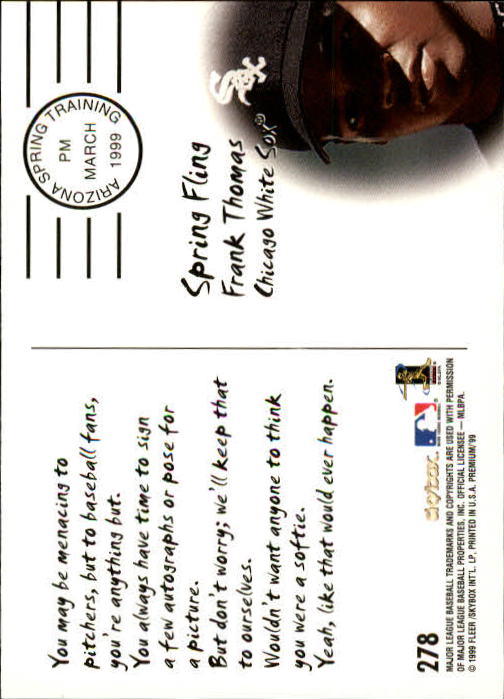 You may be menacing to
pitchers, but to baseball fans,
you're anything but.
You always have time to sign
a few autographs or pose for
a picture.
But don't worry; we'll keep that
to ourselves.
Wouldn't want anyone to think
you were a softie.
Yeah, like that would ever happen.
278
skybox
MAJOR LEAGUE BASEBALL TRADEMARKS AND COPYRIGHTS ARE USED WITH PERMISSION
OF MAJOR LEAGUE BASEBALL PROPERTIES, INC. OFFICIAL LICENSEE — MLBPA.
© 1999 FLEER /SKYBOX INT'L. LP, PRINTED IN U.S.A. PREMIUM'99
ARIZONA SPRING TRAINING
PM
MARCH
1999
Spring Fling
Frank Thomas
Chicago White Sox®
Sox